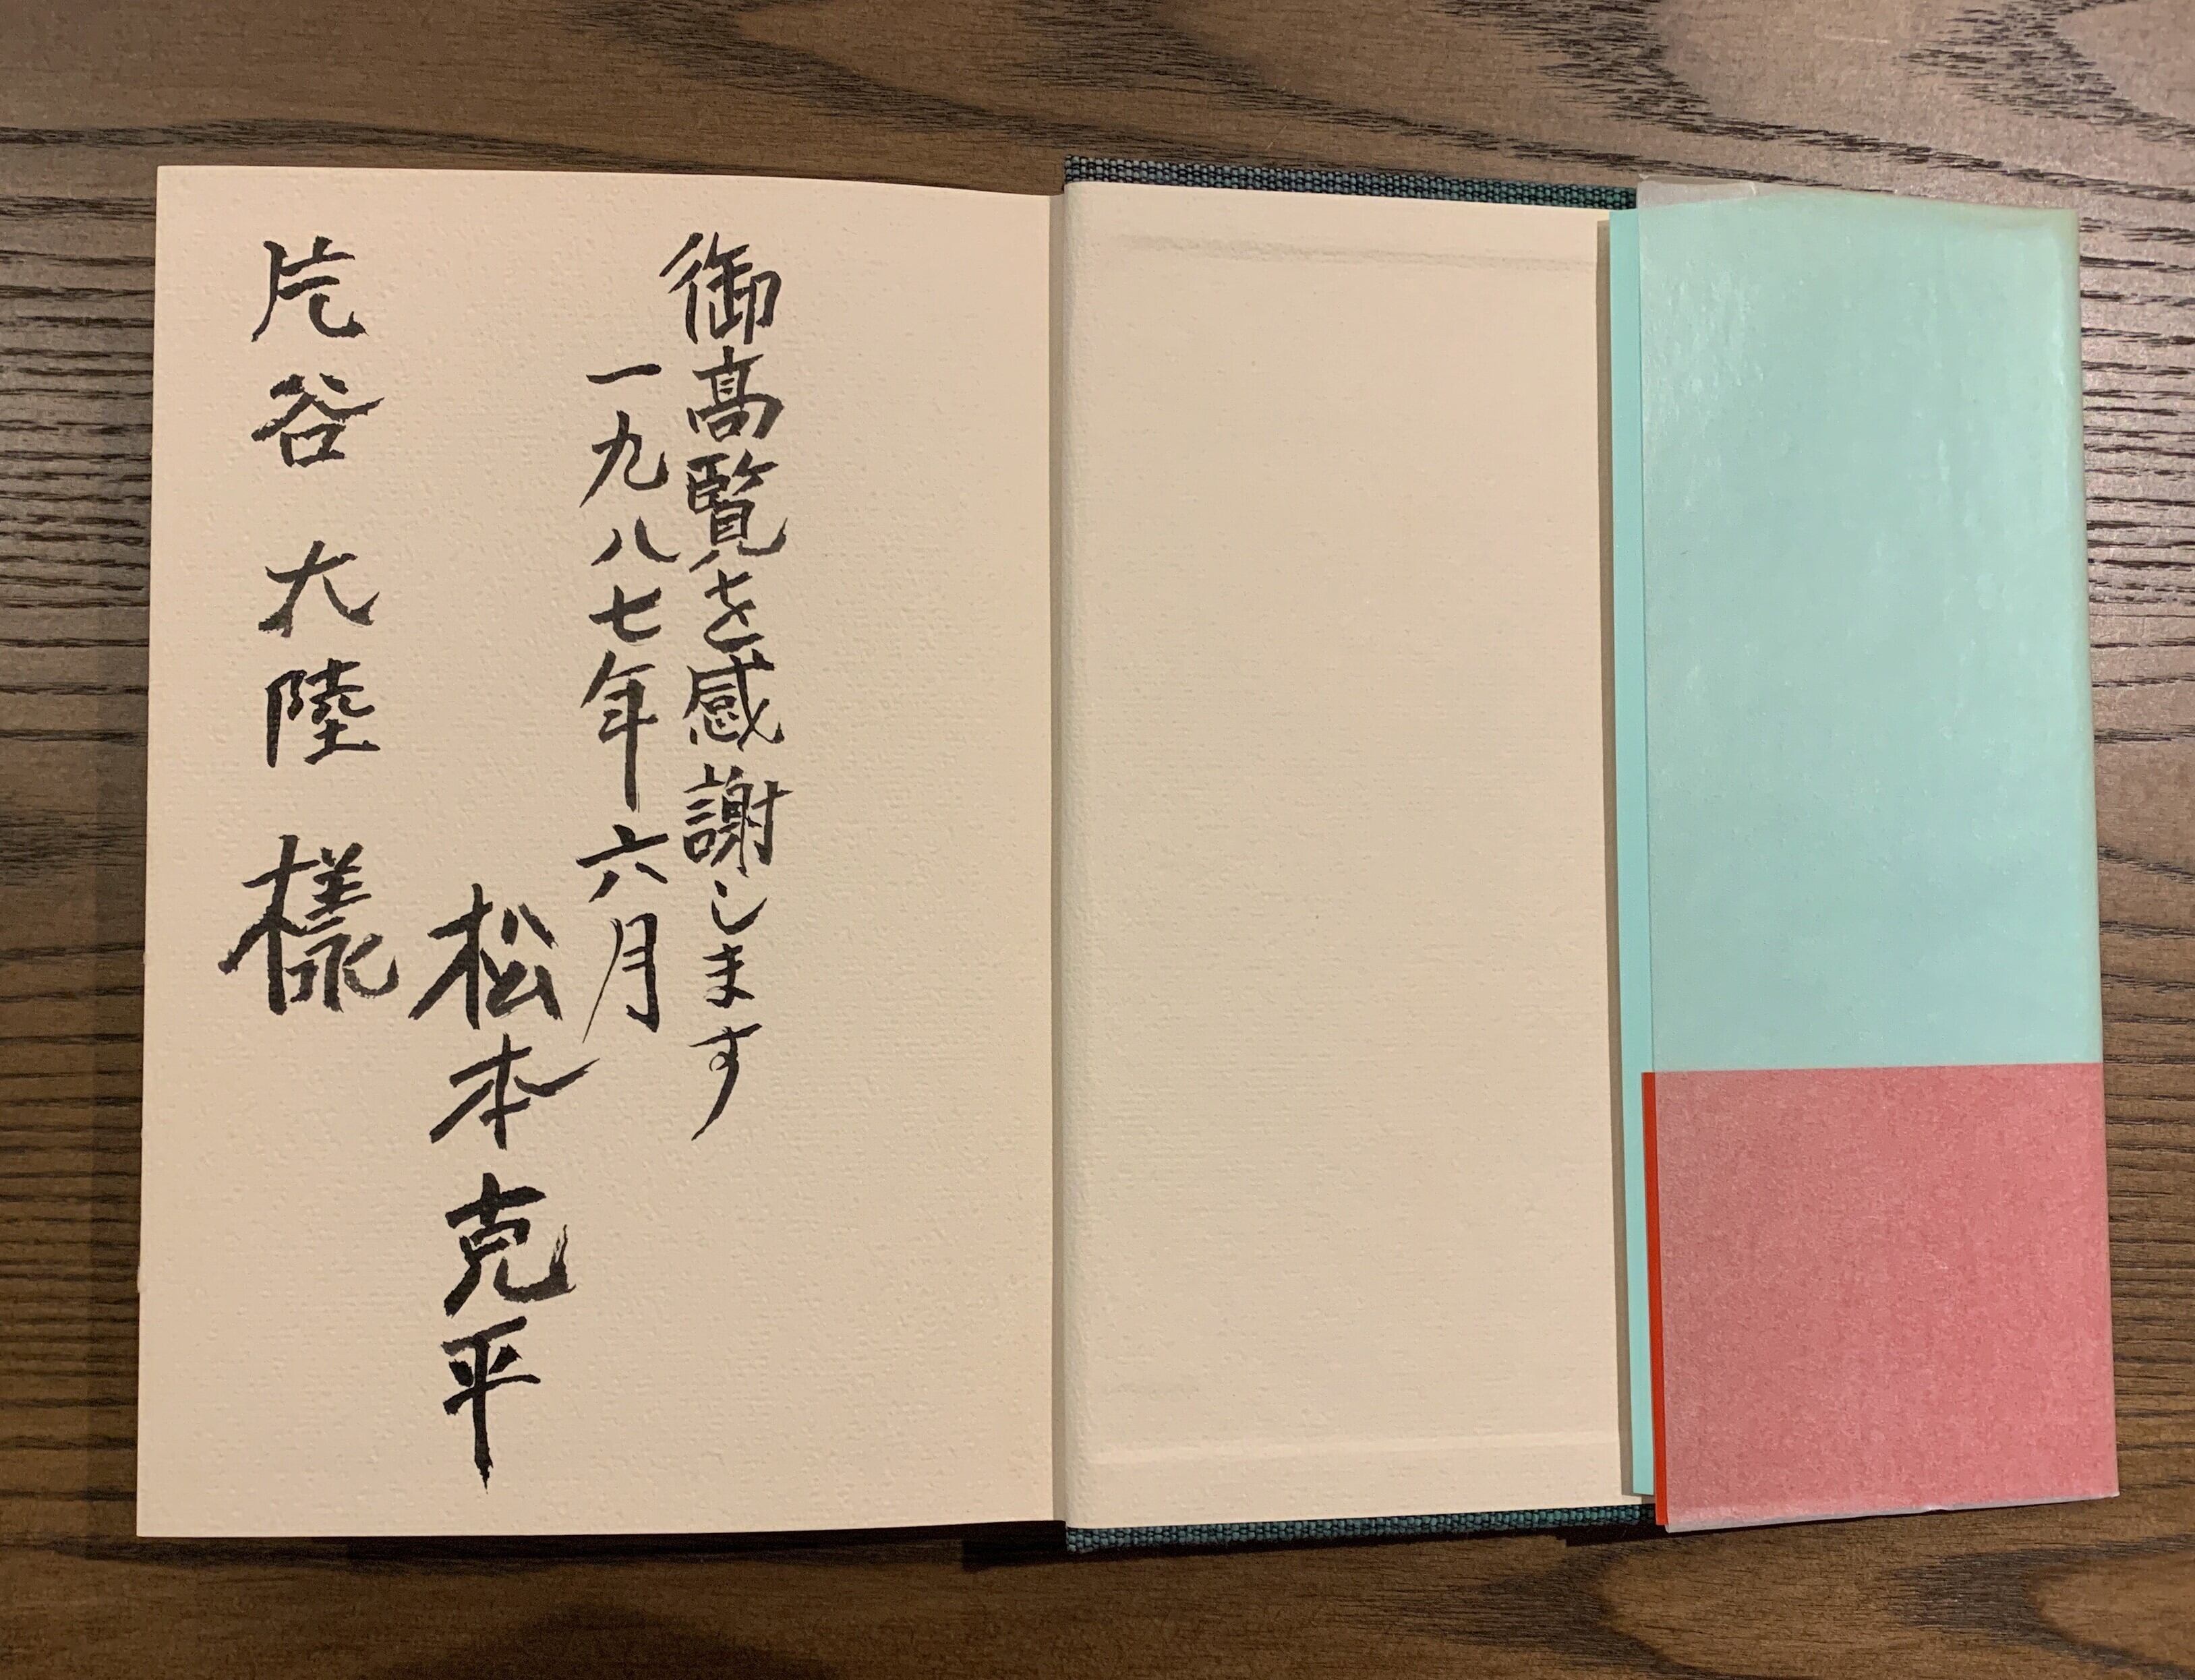 御高覧を感謝します
一九八七年六月
松本克平
片谷大陸様